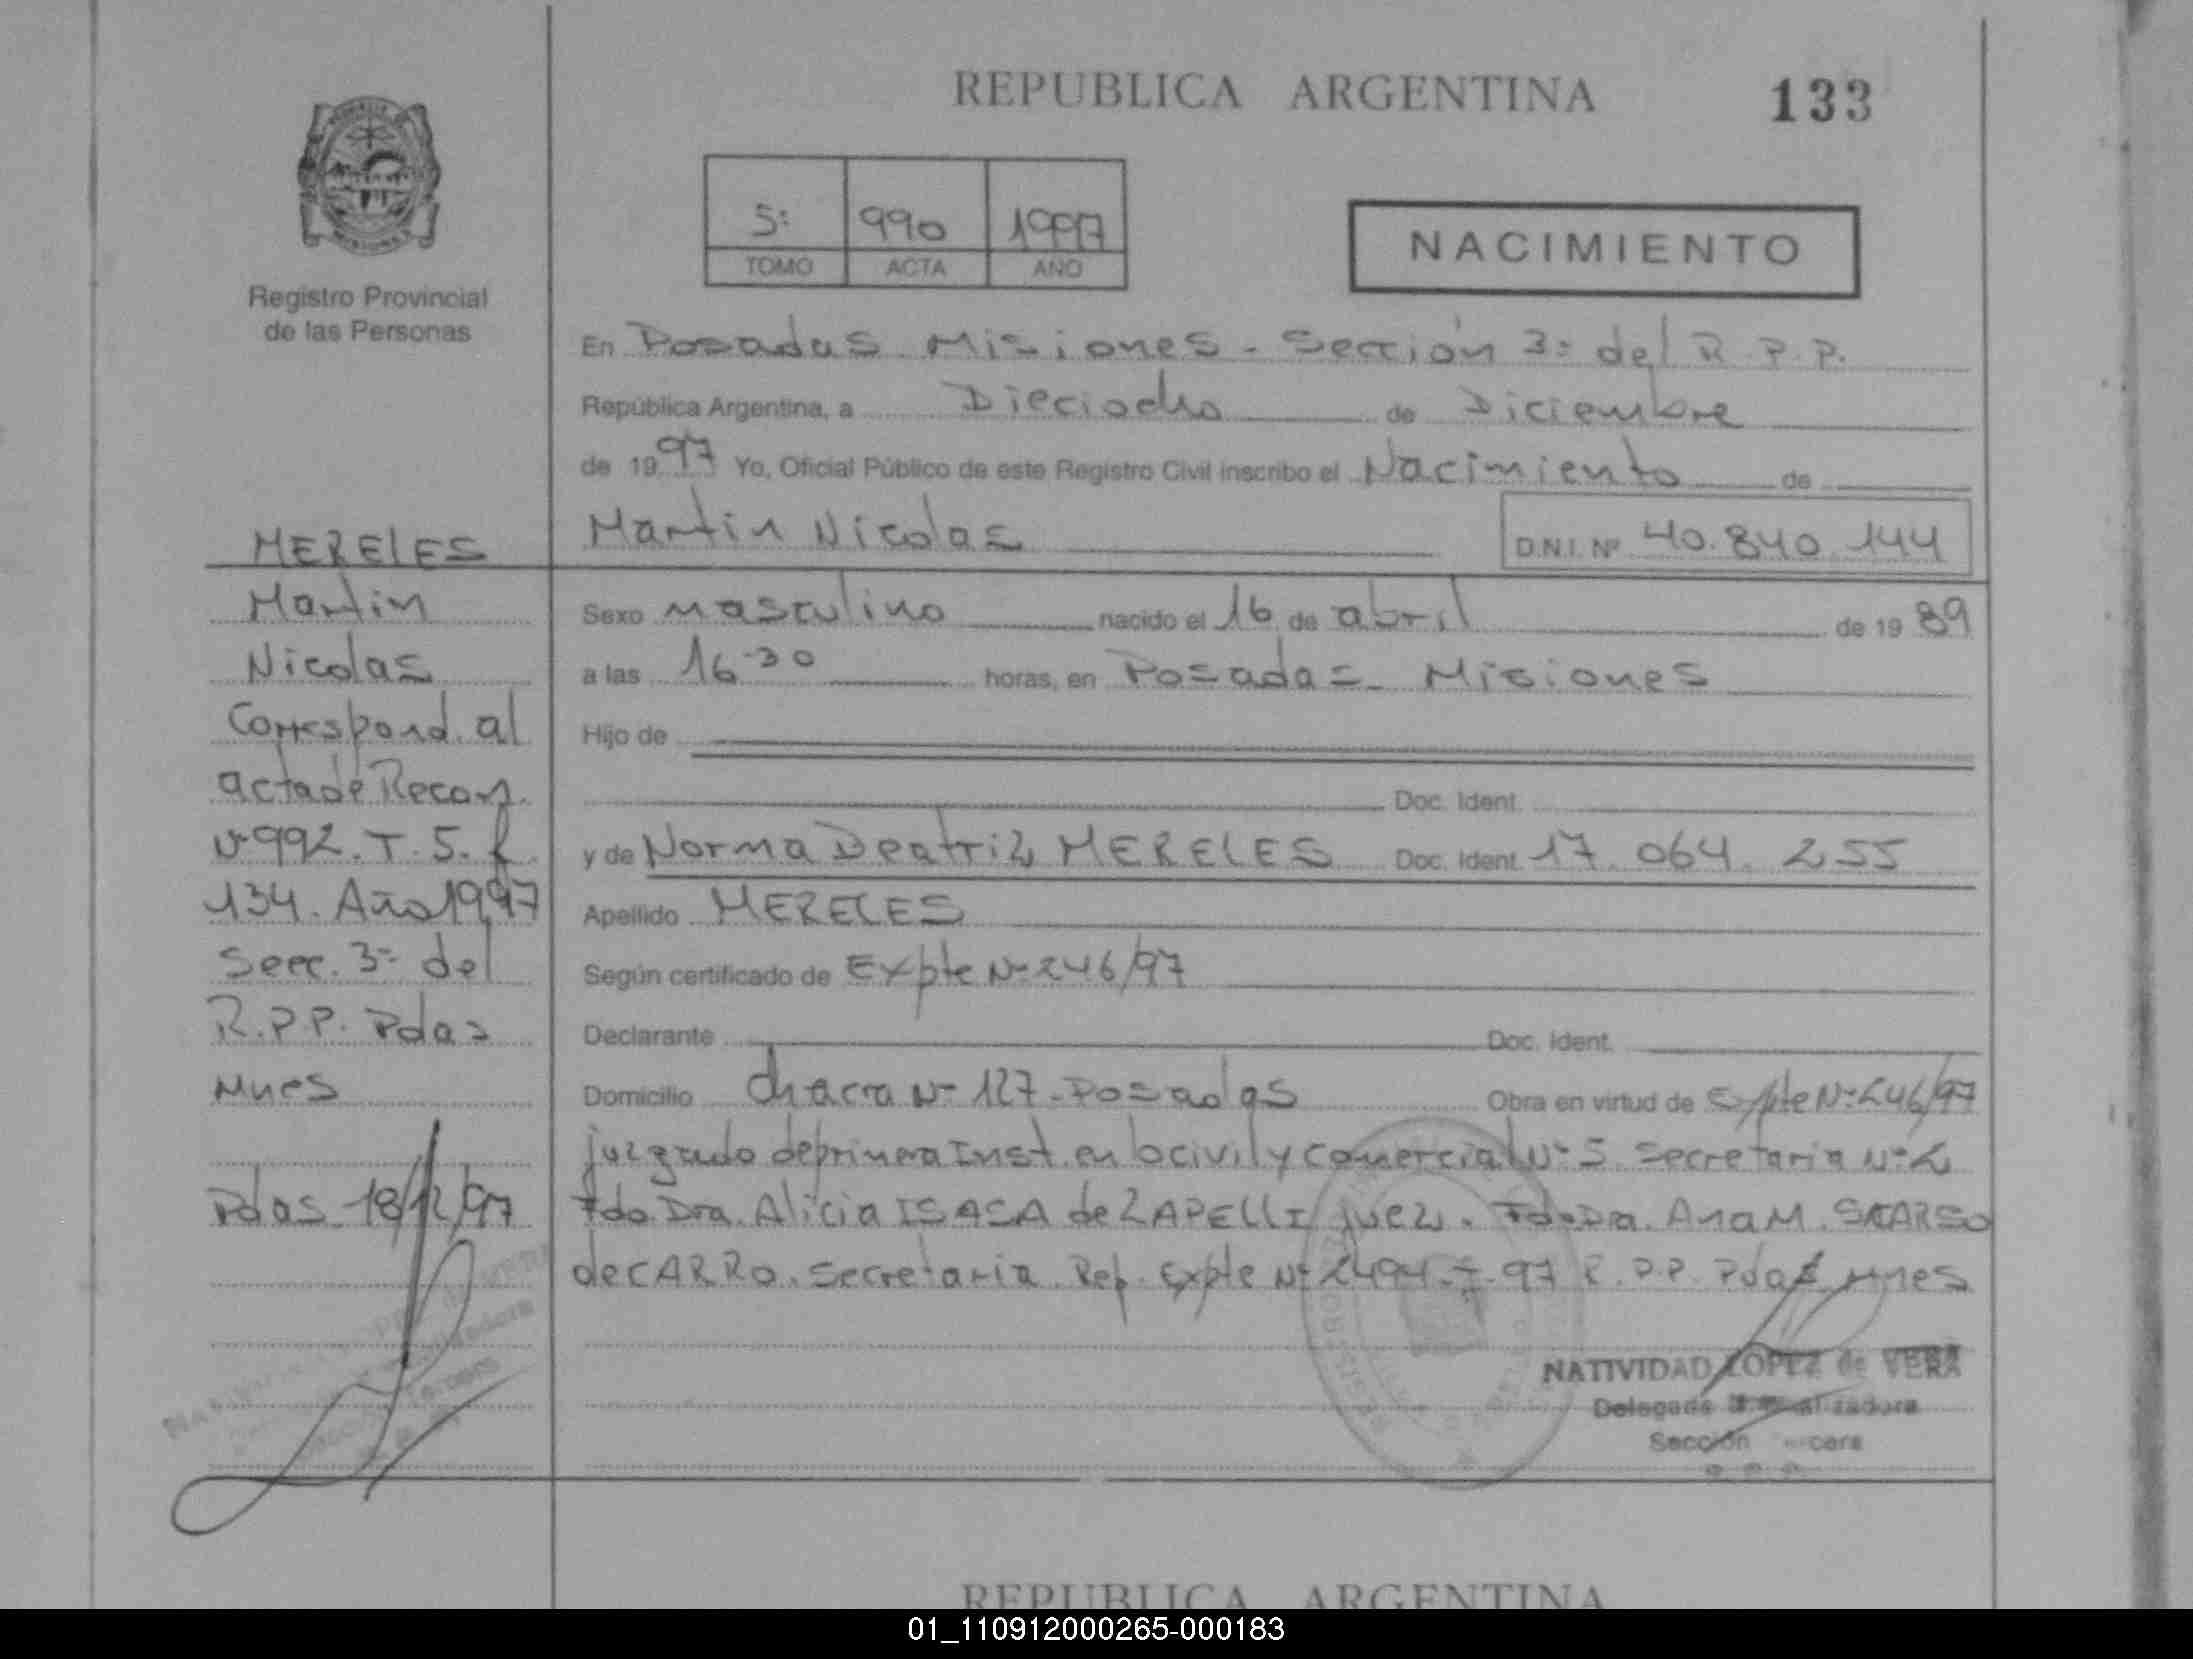 REPUBLICA ARGENTINA
133
5: 990 1997
TOMO ACTA AÑO
NACIMIENTO
Registro Provincial
de las Personas
En Posadas Misiones - Sección 3: del R.P.P.
República Argentina, a Dieciocho de Diciembre
de 1997 Yo, Oficial Público de este Registro Civil inscribo el Nacimiento de
Martin Nicolas D.N.I. Nº 40.840.144
Sexo masculino nacido el 16 de abril de 1989
a las 16-30 horas, en Posadas - Misiones
Hijo de
Doc. Ident.
y de Norma Beatriz MERELES Doc. Ident. 17.064.255
Apellido MERELES
Según certificado de Expte Nº 246/97
Declarante Doc. Ident.
Domicilio Chacra Nº 127 - Posadas Obra en virtud de Expte Nº 246/97
juzgado de primera Inst. en lo civil y comercial Nº 5 Secretaria Nº 2
Fdo. Dra. Alicia ISASA de ZAPELLI juez. Fdo Dra. Ana M.
de CARRO. Secretaria Ref. Expte Nº 2494-7-97 R.P.P. Pdas Mnes
NATIVIDAD LOPEZ de VERA
Delegada
Sección
MERELES
Martin
Nicolas
Correspond. al
acta de Recon.
Nº 992. T. 5. f.
134. Año 1997
Secc. 3º del
R.P.P. Pdas
Mnes
Pdas 18/12/97
REPUBLICA ARGENTINA
01_110912000265-000183